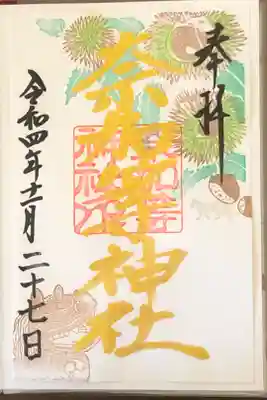 奉拝
奈加等神社
令和四年十一月二十七日